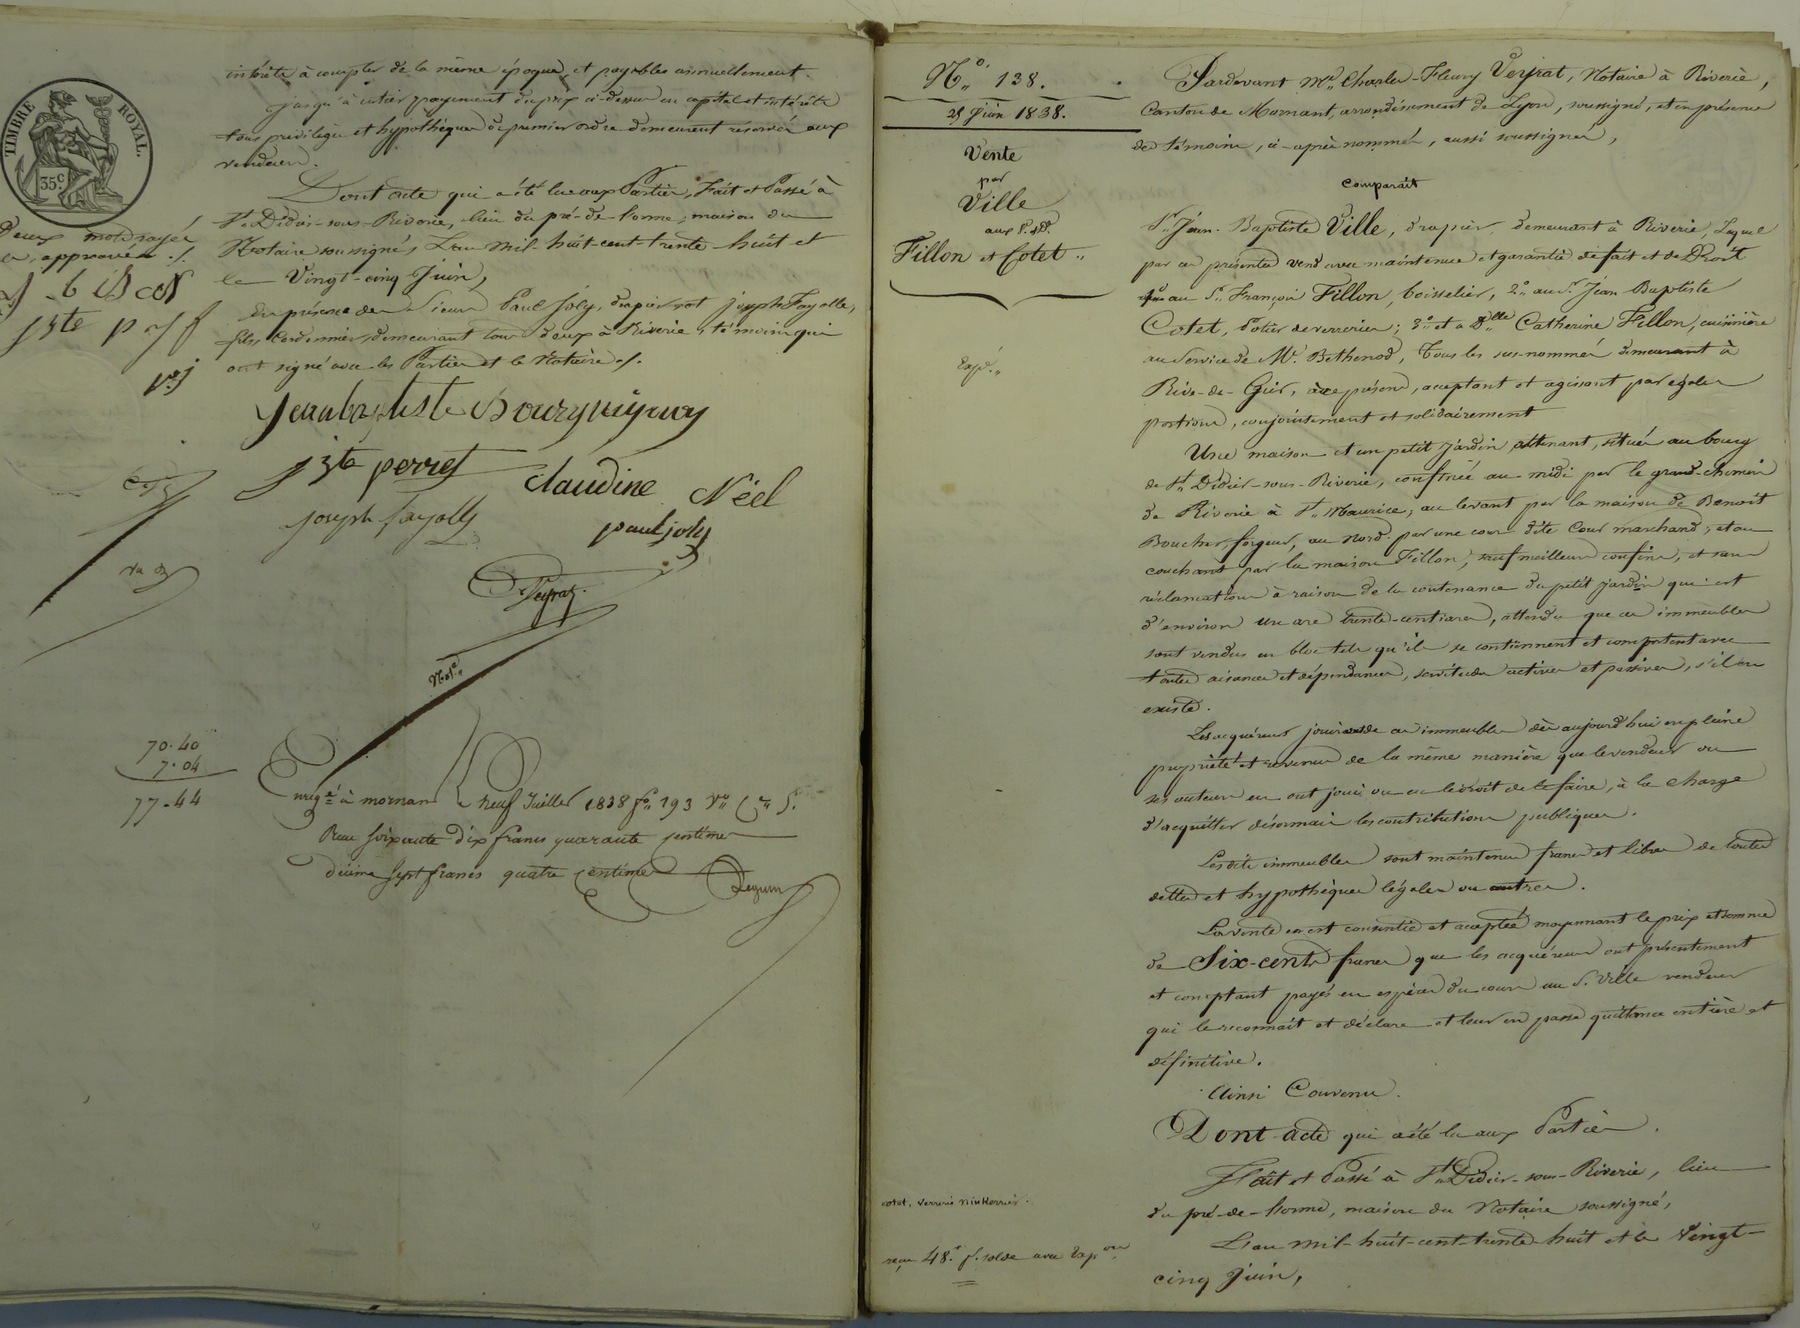 TIMBRE ROYAL.
35c
intérêts à compter de la même époque, et payables annuellement.
Jusqu'à entier payement du prix ci-dessus en capital et intérêts
tous privilèges et hypothèques de premier ordre demeurent réservés aux
vendeurs.
Dont acte qui a été lu aux Parties, Fait et Passé à
St Didier-sous-Riverie, lieu du pré-de-lorme, maison du
Notaire soussigné, L'an mil-huit-cent-trente-huit et
le Vingt-cinq Juin,
En présence des Sieurs Paul Joly, drapier et joseph Fayolle,
fils, cordonnier, demeurant tous deux à Riverie, témoins qui
ont signé avec les Parties et le Notaire ./.
Deux mots rayés
approuvés ./.
Jeanbaptiste Bourguignon
jste perret
claudine Néel
joseph fayolle
paul joly
Veyrat
Nre
70.40
7.04
77.44
Enregé à mornant le neuf Juillet 1838 fo 193 Vo Ce 5.
Reçu soixante dix francs quarante centimes
décime sept francs quatre centimes
No 138.
25 Juin 1838.
Vente
par
Ville
aux S. &
Fillon et Cotet
Expé.
Pardevant Me Charles-Fleury Veyrat, Notaire à Riverie,
Canton de Mornant, arrondissement de Lyon, soussigné, et en présence
des témoins, ci-après nommés, aussi soussignés,
Comparaît
Sr Jean-Baptiste Ville, drapier, demeurant à Riverie, Lequel
par ces présentes vend avec maintenue et garantie de fait et de Droit
1o au Sr François Fillon, boisselier, 2o au Sr Jean Baptiste
Cotet, potier de verrerier; 3o et a Dlle Catherine Fillon, cuisinière
au Service de Mr Bethenod, Tous les sus-nommés demeurant à
Rive-de-Gier, à ce présens, acceptant et agissant par égales
portions, conjointement et solidairement
Une maison et un petit jardin attenant, situés au bourg
de St Didier-sous-Riverie, confinés au midi par le grand-chemin
de Riverie à St Maurice, au levant par la maison de Benoît
Boucher, forgeur, au nord par une cour dite Cour marchand, et au
couchant par la maison Fillon, sauf meilleurs confins, et sans
réclamation à raison de la contenance du petit jardin qui est
d'environ un are trente-centiares, attendu que ces immeubles
sont vendus en bloc tels qu'ils se contiennent et comportent avec
toutes aisances et dépendances, servitudes actives et passives, s'il en
existe.
Les acquéreurs jouiront de ces immeubles dès aujourd'hui en pleine
propriété et revenus de la même manière que le vendeur ou
ses auteurs en ont joui ou eu le droit de le faire, à la charge
d'acquitter désormais les contributions publiques.
Lesdits immeubles sont maintenus francs et libres de toutes
dettes et hypothèques légales ou autres.
La vente en est consentie et acceptée moyennant le prix et somme
de Six-cents francs que les acquéreurs ont présentement
et comptant payés en espèces du cours au S. Ville vendeur
qui le reconnaît et déclare et leur en passe quittance entière et
définitive.
Ainsi Convenu.
Dont acte qui a été lu aux Parties.
Fait et Passé à St Didier-sous-Riverie, lieu
du pré-de-lorme, maison du Notaire soussigné,
L'an mil-huit-cent-trente-huit et le Vingt-
cinq Juin,
reçu 48. f. solde avec Expon